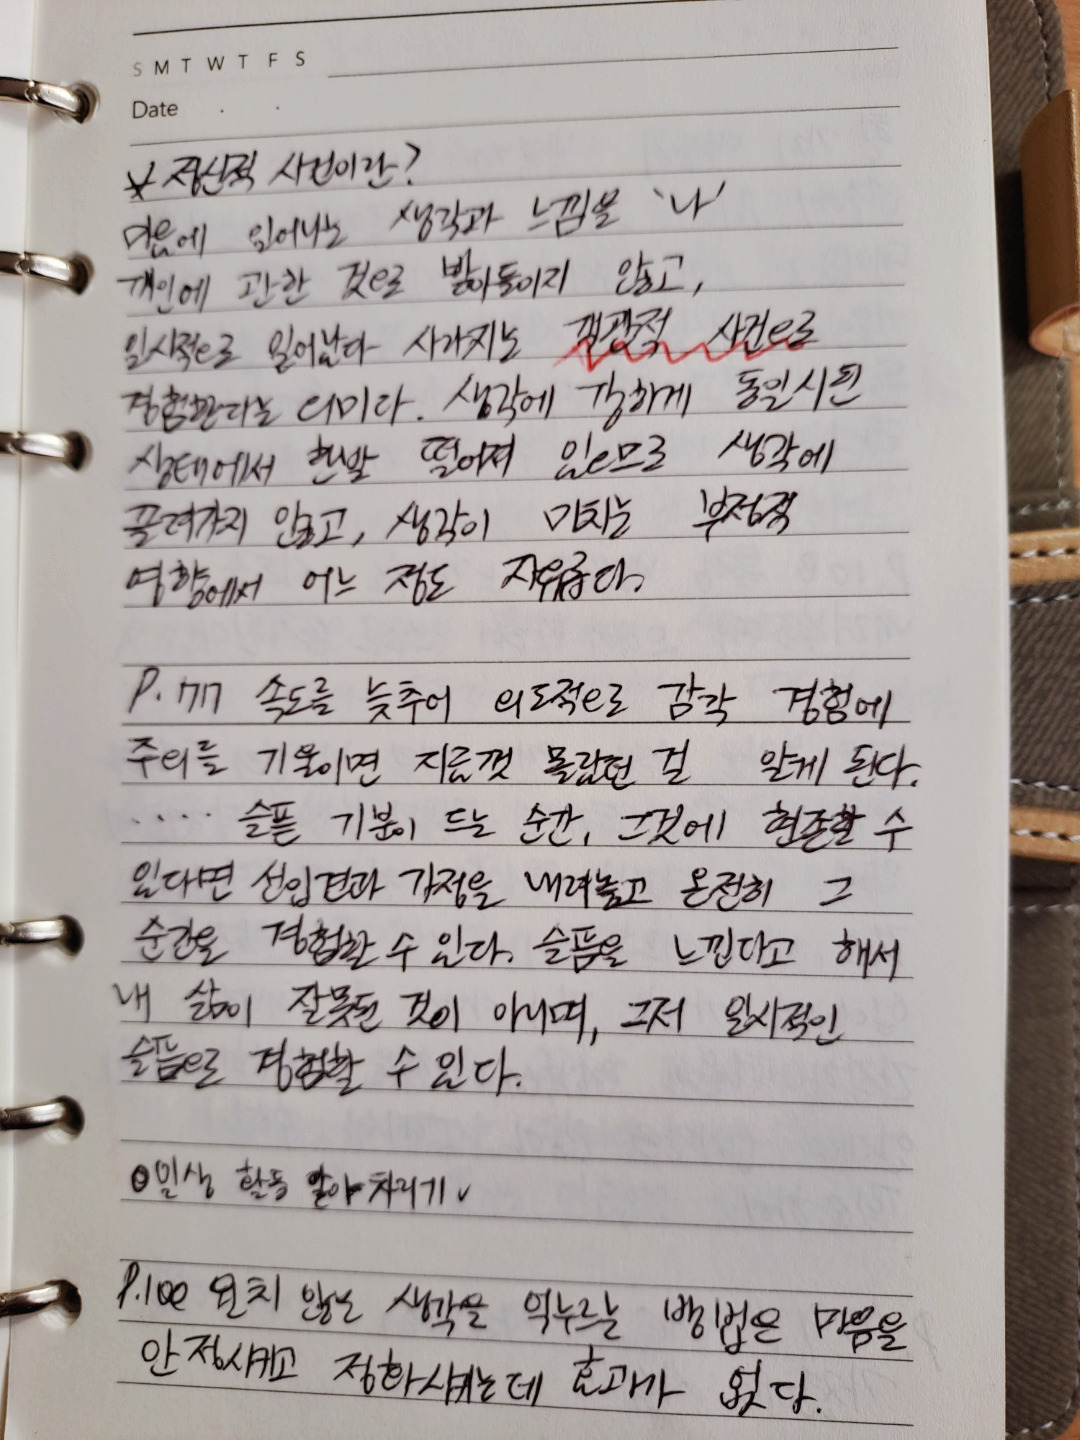 S M T W T F S
Date . .
* 정신적 사건이란?
마음에 일어나는 생각과 느낌을 '나'
개인에 관한 것으로 받아들이지 않고,
일시적으로 일어났다 사라지는 객관적 사건으로
경험한다는 의미다. 생각에 강하게 동일시된
상태에서 한발 떨어져 있으므로 생각에
끌려가지 않고, 생각이 미치는 부정적
영향에서 어느 정도 자유롭다.
P.77 속도를 늦추어 의도적으로 감각 경험에
주의를 기울이면 지금껏 몰랐던 걸 알게 된다.
.... 슬픈 기분이 드는 순간, 그것에 현존할 수
있다면 선입견과 가정을 내려놓고 온전히 그
순간을 경험할 수 있다. 슬픔을 느낀다고 해서
내 삶이 잘못된 것이 아니며, 그저 일시적인
슬픔으로 경험할 수 있다.
일상 활동 알아차리기 ✓
P.100 원치 않는 생각을 억누르는 방법은 마음을
안정시키고 정화시키는데 효과가 없다.